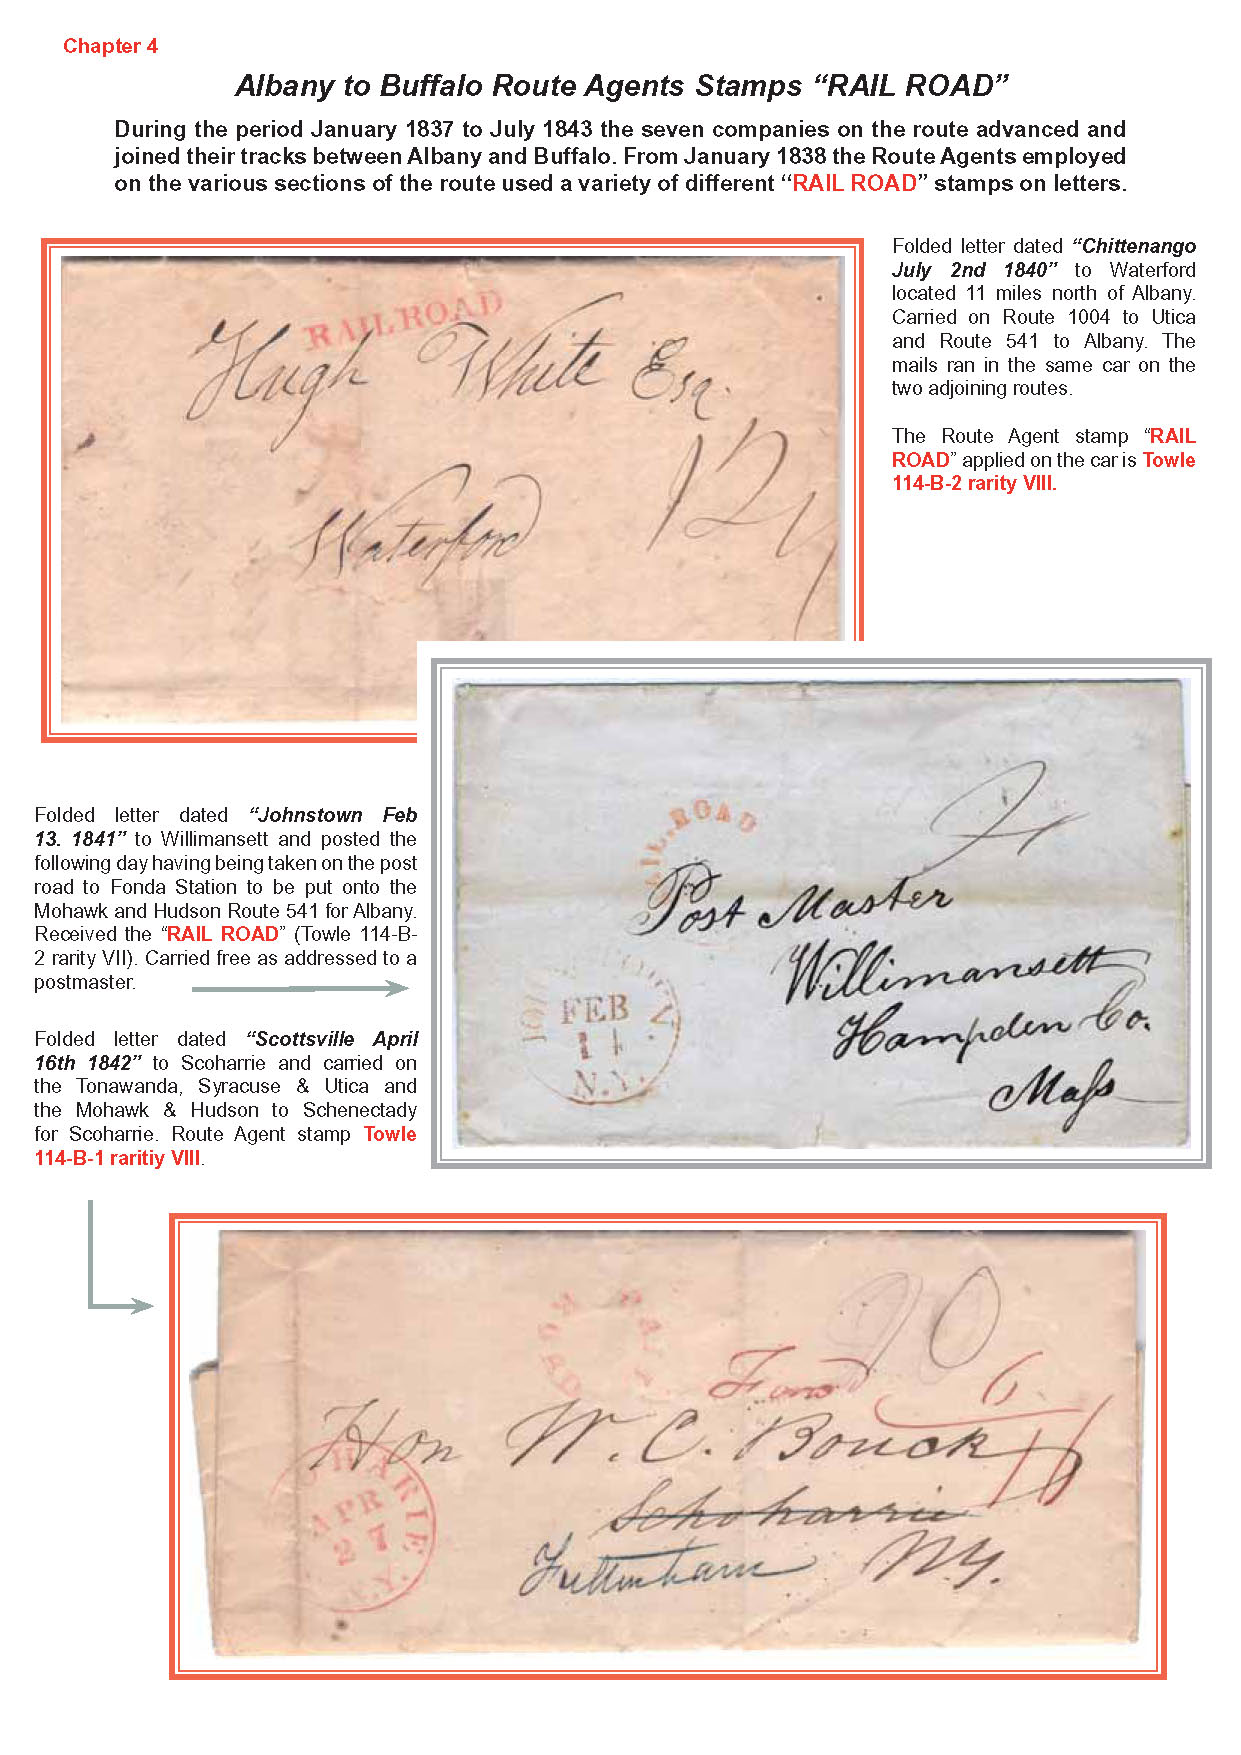 Chapter 4
Albany to Buffalo Route Agents Stamps “RAIL ROAD”
During the period January 1837 to July 1843 the seven companies on the route advanced and
joined their tracks between Albany and Buffalo. From January 1838 the Route Agents employed
on the various sections of the route used a variety of different “RAIL ROAD” stamps on letters.
Folded letter dated “Chittenango
July 2nd 1840” to Waterford
located 11 miles north of Albany.
Carried on Route 1004 to Utica
and Route 541 to Albany. The
mails ran in the same car on the
two adjoining routes.
The Route Agent stamp “RAIL
ROAD” applied on the car is Towle
114-B-2 rarity VIII.
RAILROAD
Hugh White Esq.
Waterford
12½
Folded letter dated “Johnstown Feb
13. 1841” to Willimansett and posted the
following day having being taken on the post
road to Fonda Station to be put onto the
Mohawk and Hudson Route 541 for Albany.
Received the “RAIL ROAD” (Towle 114-B-
2 rarity VII). Carried free as addressed to a
postmaster.
Folded letter dated “Scottsville April
16th 1842” to Scoharrie and carried on
the Tonawanda, Syracuse & Utica and
the Mohawk & Hudson to Schenectady
for Scoharrie. Route Agent stamp Towle
114-B-1 raritiy VIII.
AIL.ROAD
Post Master
Willimansett
Hampden Co.
Mass
FEB
14
N.Y.
RAIL ROAD
20
6
Hon W. C. Bouck
Schoharrie
N.Y.
HARIE
APR
27
N.Y.